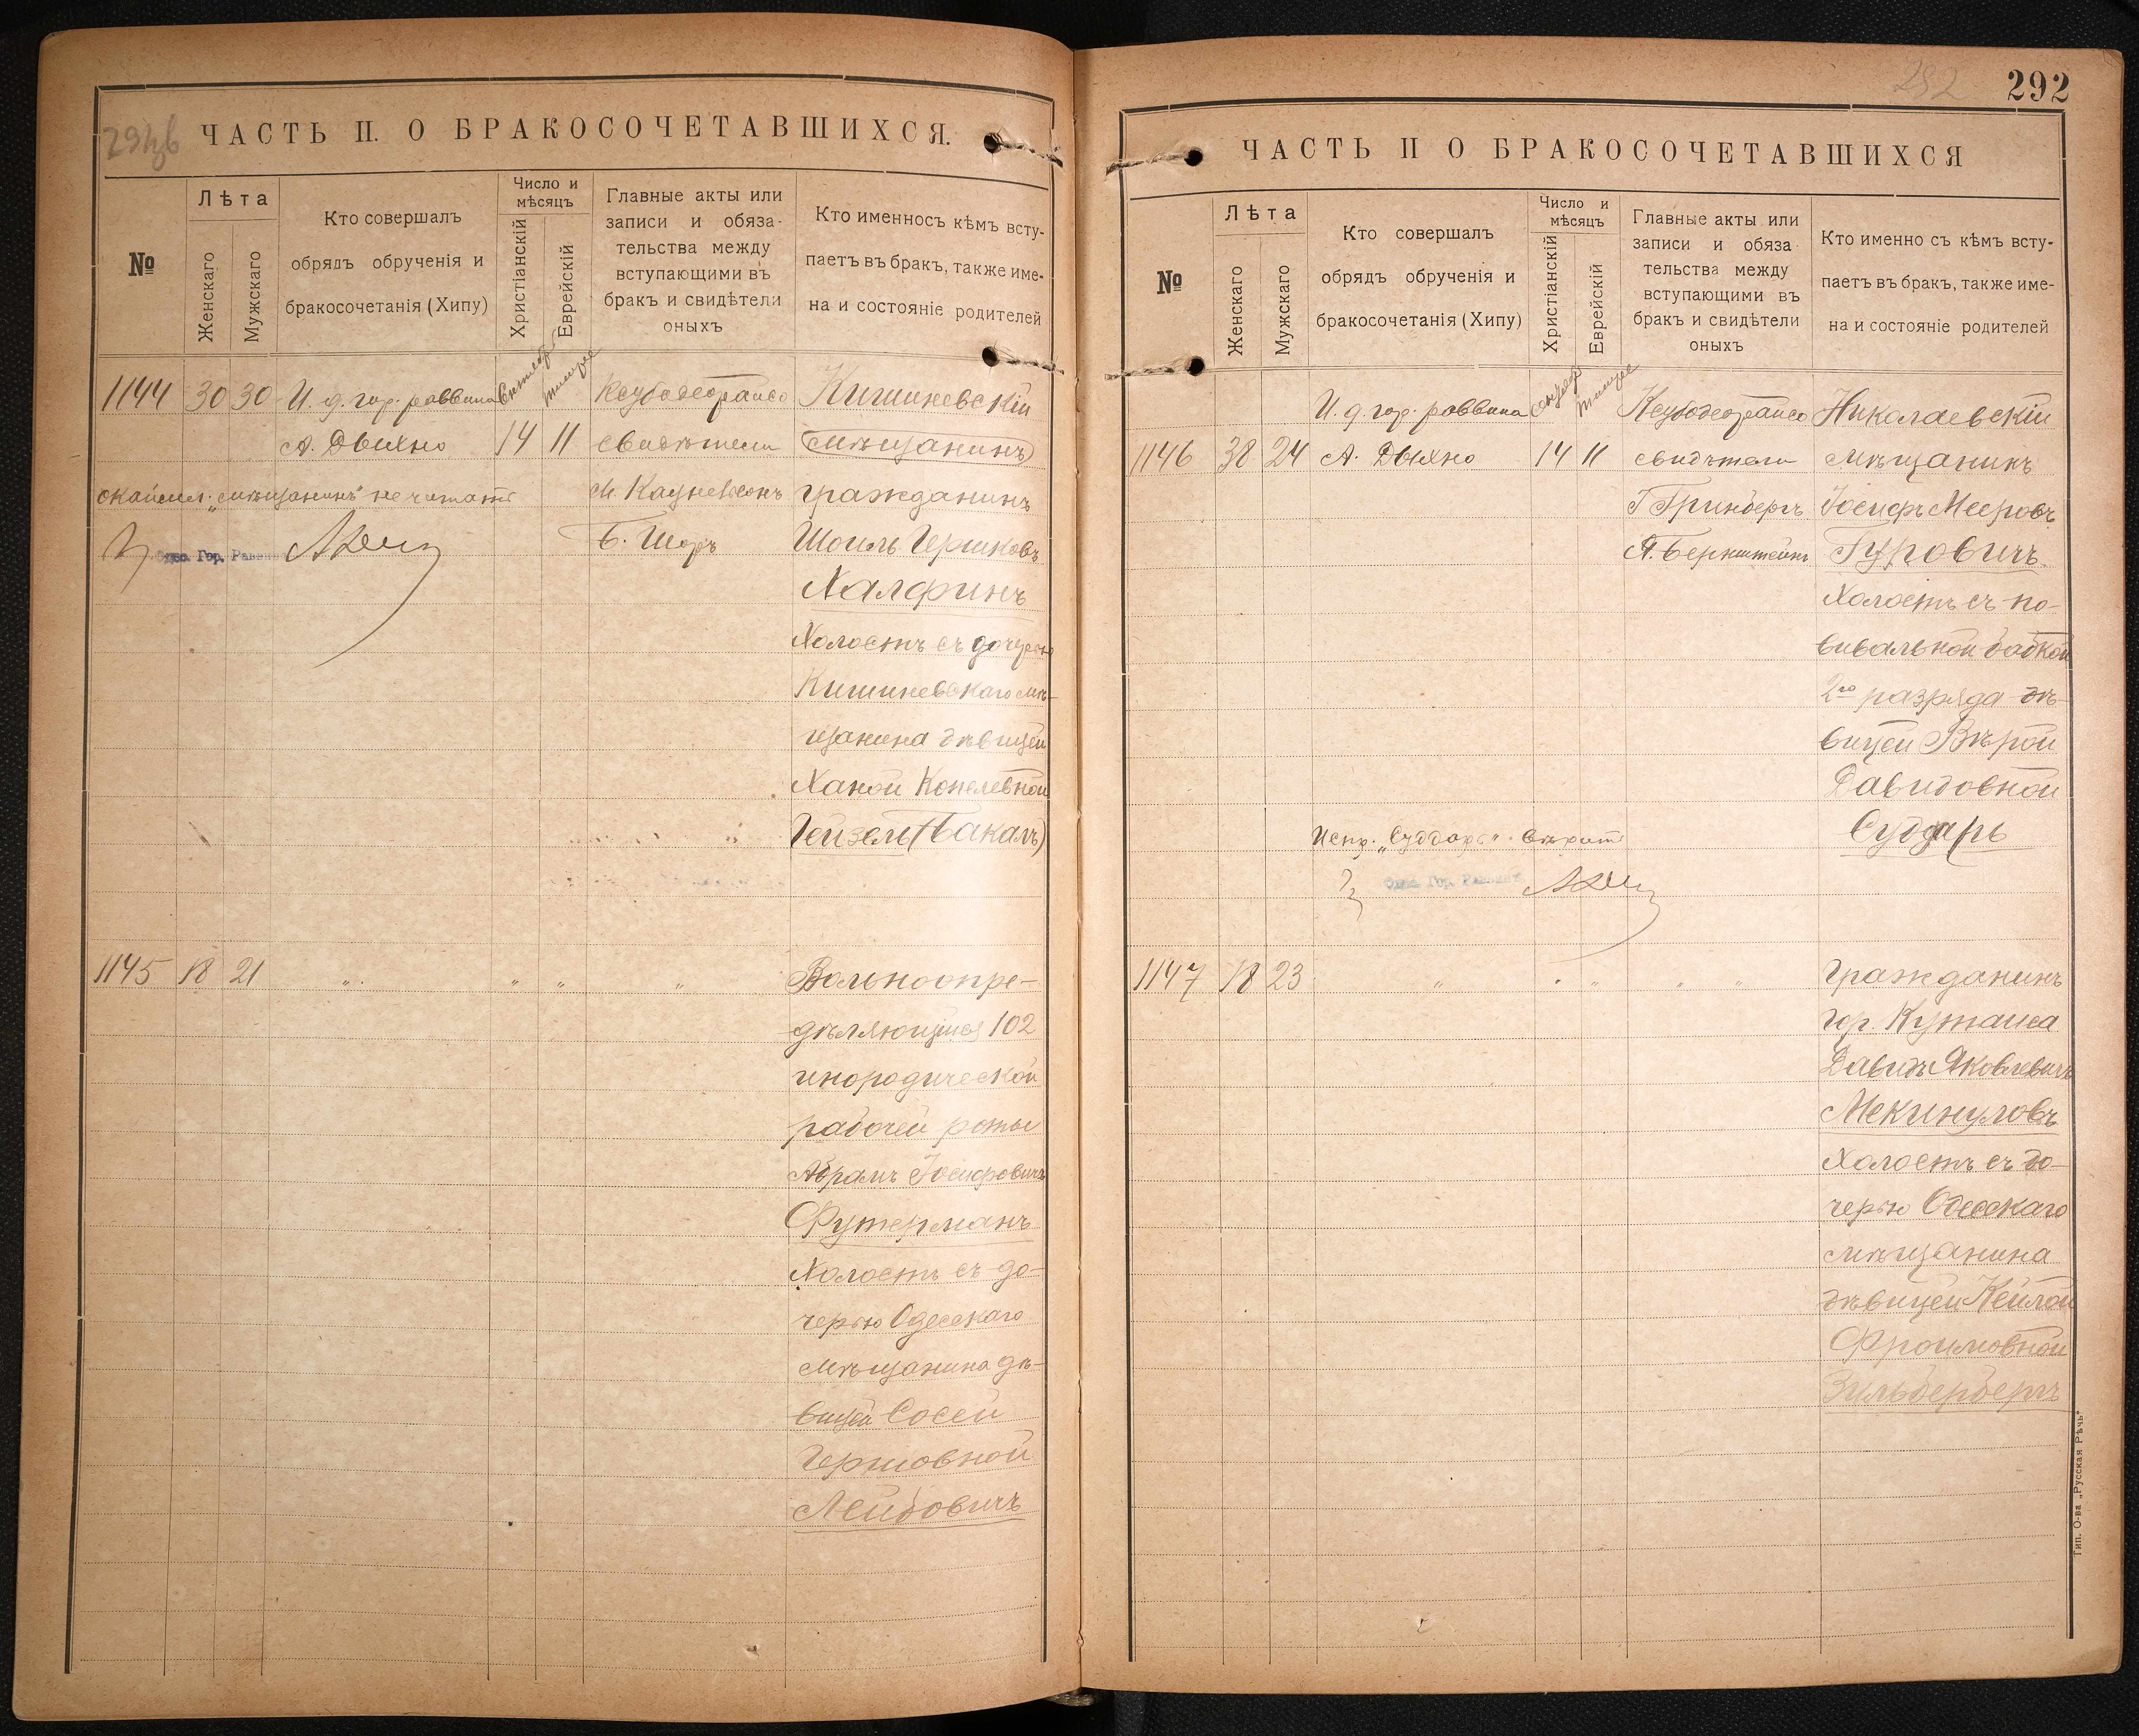 291об
ЧАСТЬ II. О БРАКОСОЧЕТАВШИХСЯ.
№
Лѣта
Женскаго
Мужскаго
Кто совершалъ
обрядъ обрученія и
бракосочетанія (Хипу)
Число и
мѣсяцъ
Христіанскій
Еврейскій
Главные акты или
записи и обяза-
тельства между
вступающими въ
бракъ и свидѣтели
оныхъ
Кто именносъ кѣмъ всту-
паетъ въ бракъ, также име-
на и состояніе родителей
1144 30 30 И. д. гор. раввина
А. Дыхно
14 11
свидѣтели
Б. Шоръ
Кишиневскій
мѣщанинъ
гражданинъ
Шоилъ Гершковъ
Халфинъ
Холостъ съ дочерью
Кишиневскаго мѣ-
щанина дѣвицей
Ханой Копелевной
Гейзель (Бакалъ)
окаймл. „мѣщанинъ" не читать
Одес. Гор. Раввинъ
1145 18 21 „ „ „ „
Вольноопре-
дѣляющійся 102
инородической
рабочей роты
Абрамъ Іосифовичъ
Футерманъ
Холостъ съ до-
черью Одесскаго
мѣщанина дѣ-
вицей Сосей
Гершовной
Лейбовичъ
292
292
ЧАСТЬ II О БРАКОСОЧЕТАВШИХСЯ
№
Лѣта
Женскаго
Мужскаго
Кто совершалъ
обрядъ обрученія и
бракосочетанія (Хипу)
Число и
мѣсяцъ
Христіанскій
Еврейскій
Главные акты или
записи и обяза
тельства между
вступающими въ
бракъ и свидѣтели
оныхъ
Кто именно съ кѣмъ всту-
паетъ въ бракъ, также име-
на и состояніе родителей
1146 38 24 И. д. гор. раввина
А. Дыхно
14 11
свидѣтели
Г Гринбергъ
Я. Бернштейнъ
Николаевскій
мѣщанинъ
Іосифъ Мееровъ
Гуровичъ
Холостъ съ по-
вивальной бабкой
2го разряда дѣ-
вицей Вѣрой
Давидовной
Суддарь
Испр. „Суддарь" вѣрить
Одес. Гор. Раввинъ
1147 18 23 „ „ „ „ „
Гражданинъ
гор. Кутаиса
Давидъ Яковлевичъ
Мекинуловъ
Холостъ съ до-
черью Одесскаго
мѣщанина
дѣвицей Кейлой
Фроимовной
Зильбербергъ
Тип. О-ва „Русская Рѣчь"